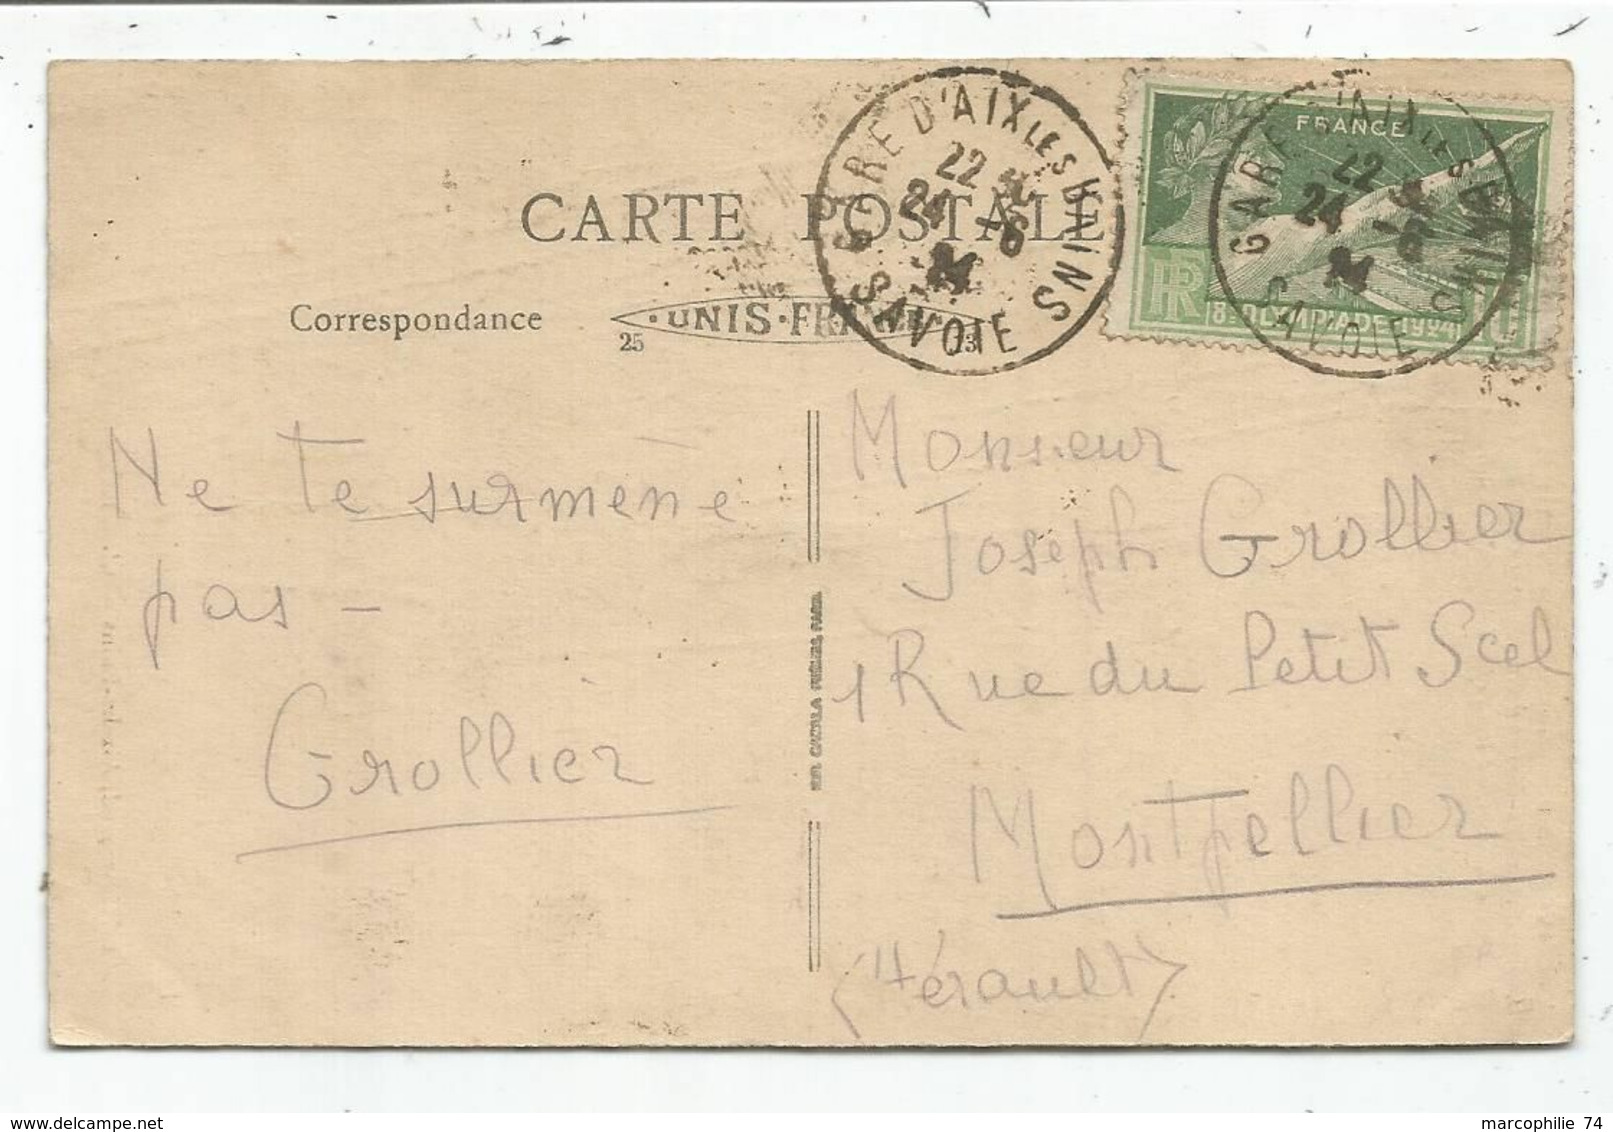 CARTE POSTALE
Correspondance
·UNIS·FRANCE·
25
13
GARE D'AIX LES BAINS
22
24 -6
24
SAVOIE
FRANCE
GARE D'AIX LES BAINS
22
24 -6
24
SAVOIE
RF
8e OLYMPIADE 1924
10c
Ne te surmène
pas -
Grollier
Monsieur
Joseph Grollier
1 Rue du Petit Scel
Montpellier
(Hérault)
marcophilie 74